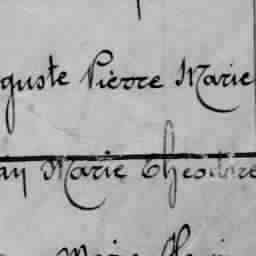 guste Pierre Marie
ay Marie Theodore
Marie